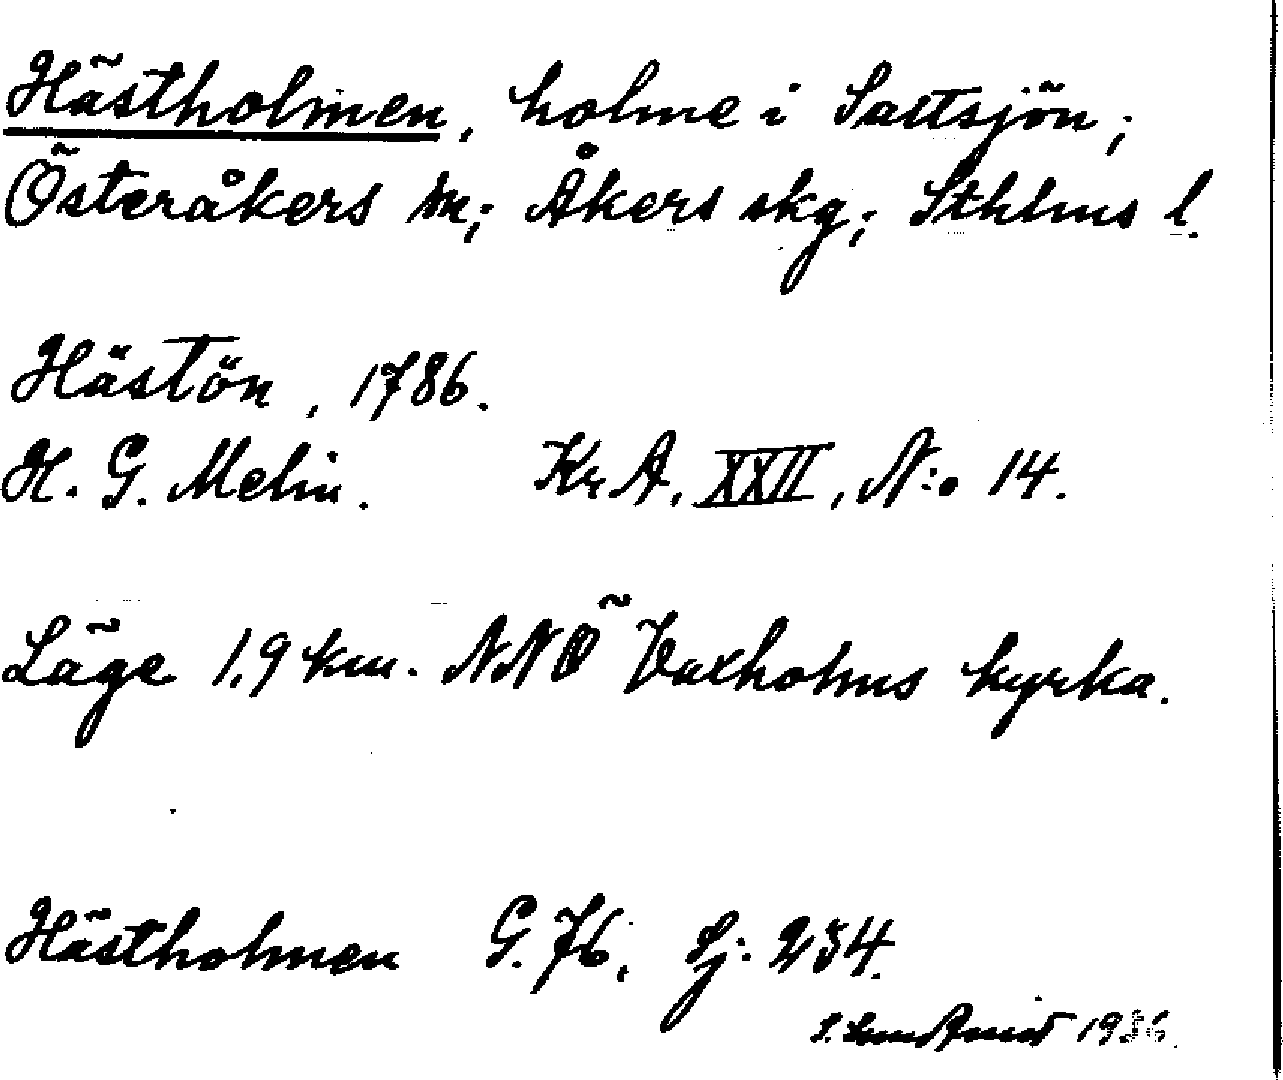 Hästholmen, holme i Saltsjön;
Österåkers sn; Åkers skg; Sthlms l.
Hästön, 1786.
H. G. Melin. Kr A, XXII, N:o 14.
Läge 1,9 km. NNÖ Vaxholms kyrka.
Hästholmen G. 76, Sj: 234.
S. 19